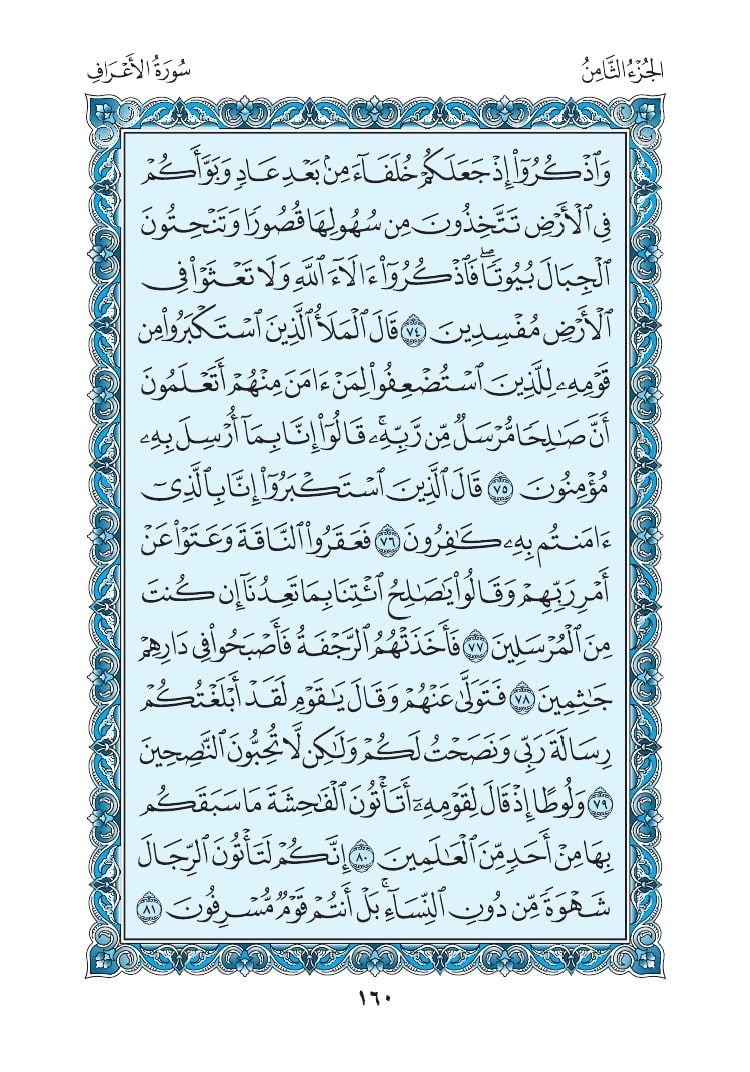 الجُزْءُ الثَّامِنُ
سُورَةُ الأَعْرَافِ
وَٱذْكُرُوٓا۟ إِذْ جَعَلَكُمْ خُلَفَآءَ مِنۢ بَعْدِ عَادٍ وَبَوَّأَكُمْ
فِى ٱلْأَرْضِ تَتَّخِذُونَ مِن سُهُولِهَا قُصُورًا وَتَنْحِتُونَ
ٱلْجِبَالَ بُيُوتًا ۖ فَٱذْكُرُوٓا۟ ءَالَآءَ ٱللَّهِ وَلَا تَعْثَوْا۟ فِى
ٱلْأَرْضِ مُفْسِدِينَ ٧٤ قَالَ ٱلْمَلَأُ ٱلَّذِينَ ٱسْتَكْبَرُوا۟ مِن
قَوْمِهِۦ لِلَّذِينَ ٱسْتُضْعِفُوا۟ لِمَنْ ءَامَنَ مِنْهُمْ أَتَعْلَمُونَ
أَنَّ صَـٰلِحًا مُّرْسَلٌ مِّن رَّبِّهِۦ ۚ قَالُوٓا۟ إِنَّا بِمَآ أُرْسِلَ بِهِۦ
مُؤْمِنُونَ ٧٥ قَالَ ٱلَّذِينَ ٱسْتَكْبَرُوٓا۟ إِنَّا بِٱلَّذِىٓ
ءَامَنتُم بِهِۦ كَـٰفِرُونَ ٧٦ فَعَقَرُوا۟ ٱلنَّاقَةَ وَعَتَوْا۟ عَنْ
أَمْرِ رَبِّهِمْ وَقَالُوا۟ يَـٰصَـٰلِحُ ٱئْتِنَا بِمَا تَعِدُنَآ إِن كُنتَ
مِنَ ٱلْمُرْسَلِينَ ٧٧ فَأَخَذَتْهُمُ ٱلرَّجْفَةُ فَأَصْبَحُوا۟ فِى دَارِهِمْ
جَـٰثِمِينَ ٧٨ فَتَوَلَّىٰ عَنْهُمْ وَقَالَ يَـٰقَوْمِ لَقَدْ أَبْلَغْتُكُمْ
رِسَالَةَ رَبِّى وَنَصَحْتُ لَكُمْ وَلَـٰكِن لَّا تُحِبُّونَ ٱلنَّـٰصِحِينَ
٧٩ وَلُوطًا إِذْ قَالَ لِقَوْمِهِۦٓ أَتَأْتُونَ ٱلْفَـٰحِشَةَ مَا سَبَقَكُم
بِهَا مِنْ أَحَدٍ مِّنَ ٱلْعَـٰلَمِينَ ٨٠ إِنَّكُمْ لَتَأْتُونَ ٱلرِّجَالَ
شَهْوَةً مِّن دُونِ ٱلنِّسَآءِ ۚ بَلْ أَنتُمْ قَوْمٌ مُّسْرِفُونَ ٨١
١٦٠